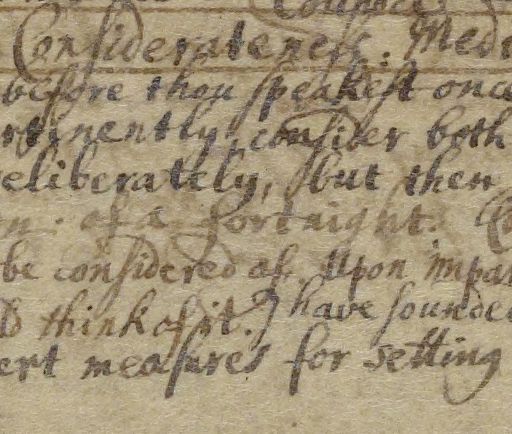 Considerateness. Med
before thou speakest once
rtinently, consider both
eliberately, but then
n. of a fortnight.
be considered of. Upon impar
d think of it. I have sounde
ert measures for setting